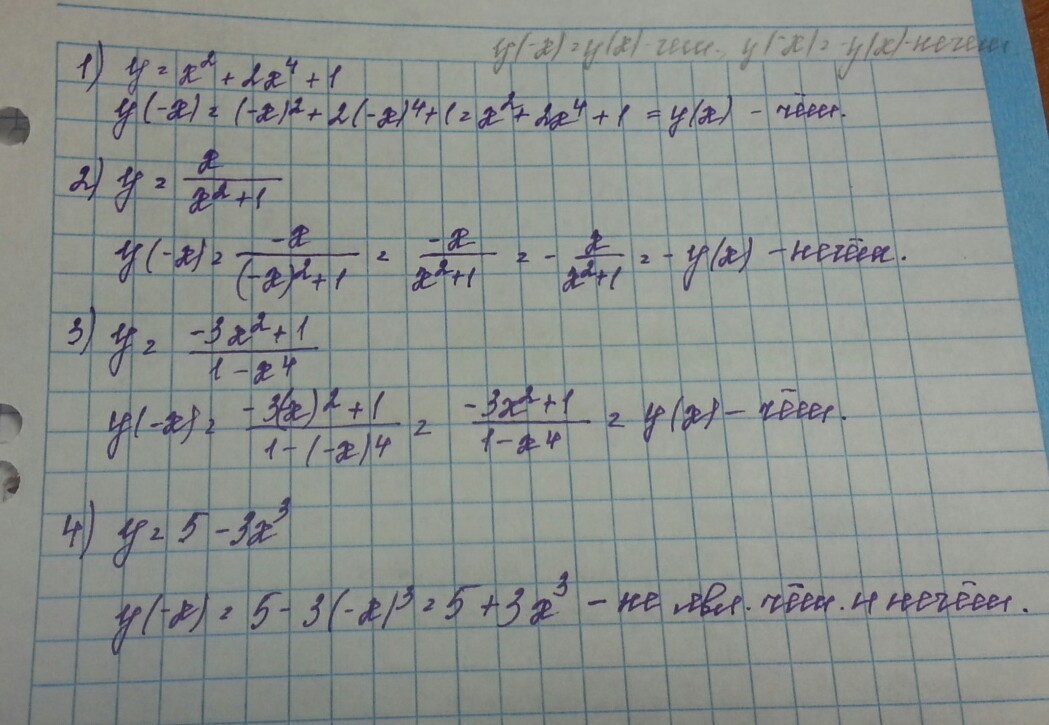 y(-x)=y(x)-чет., y(-x)=-y(x)-нечет.
1) y = x² + 2x⁴ + 1
y(-x) = (-x)² + 2(-x)⁴ + 1 = x² + 2x⁴ + 1 = y(x) - чёт.
2) y = x/(x²+1)
y(-x) = -x/((-x)²+1) = -x/(x²+1) = - x/(x²+1) = - y(x) - нечёт.
3) y = (-3x²+1)/(1-x⁴)
y(-x) = (-3(x)²+1)/(1-(-x)4) = (-3x²+1)/(1-x4) = y(x) - чёт.
4) y = 5 - 3x³
y(-x) = 5 - 3(-x)³ = 5 + 3x³ - не явл. чёт. и нечёт.